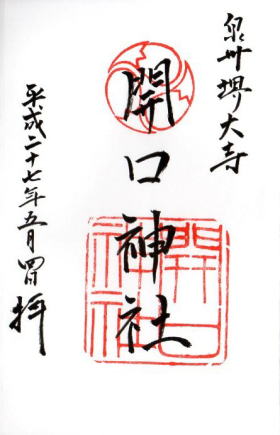 泉州堺大寺
開口神社
開口
神社
平成二十七年五月四日
拝